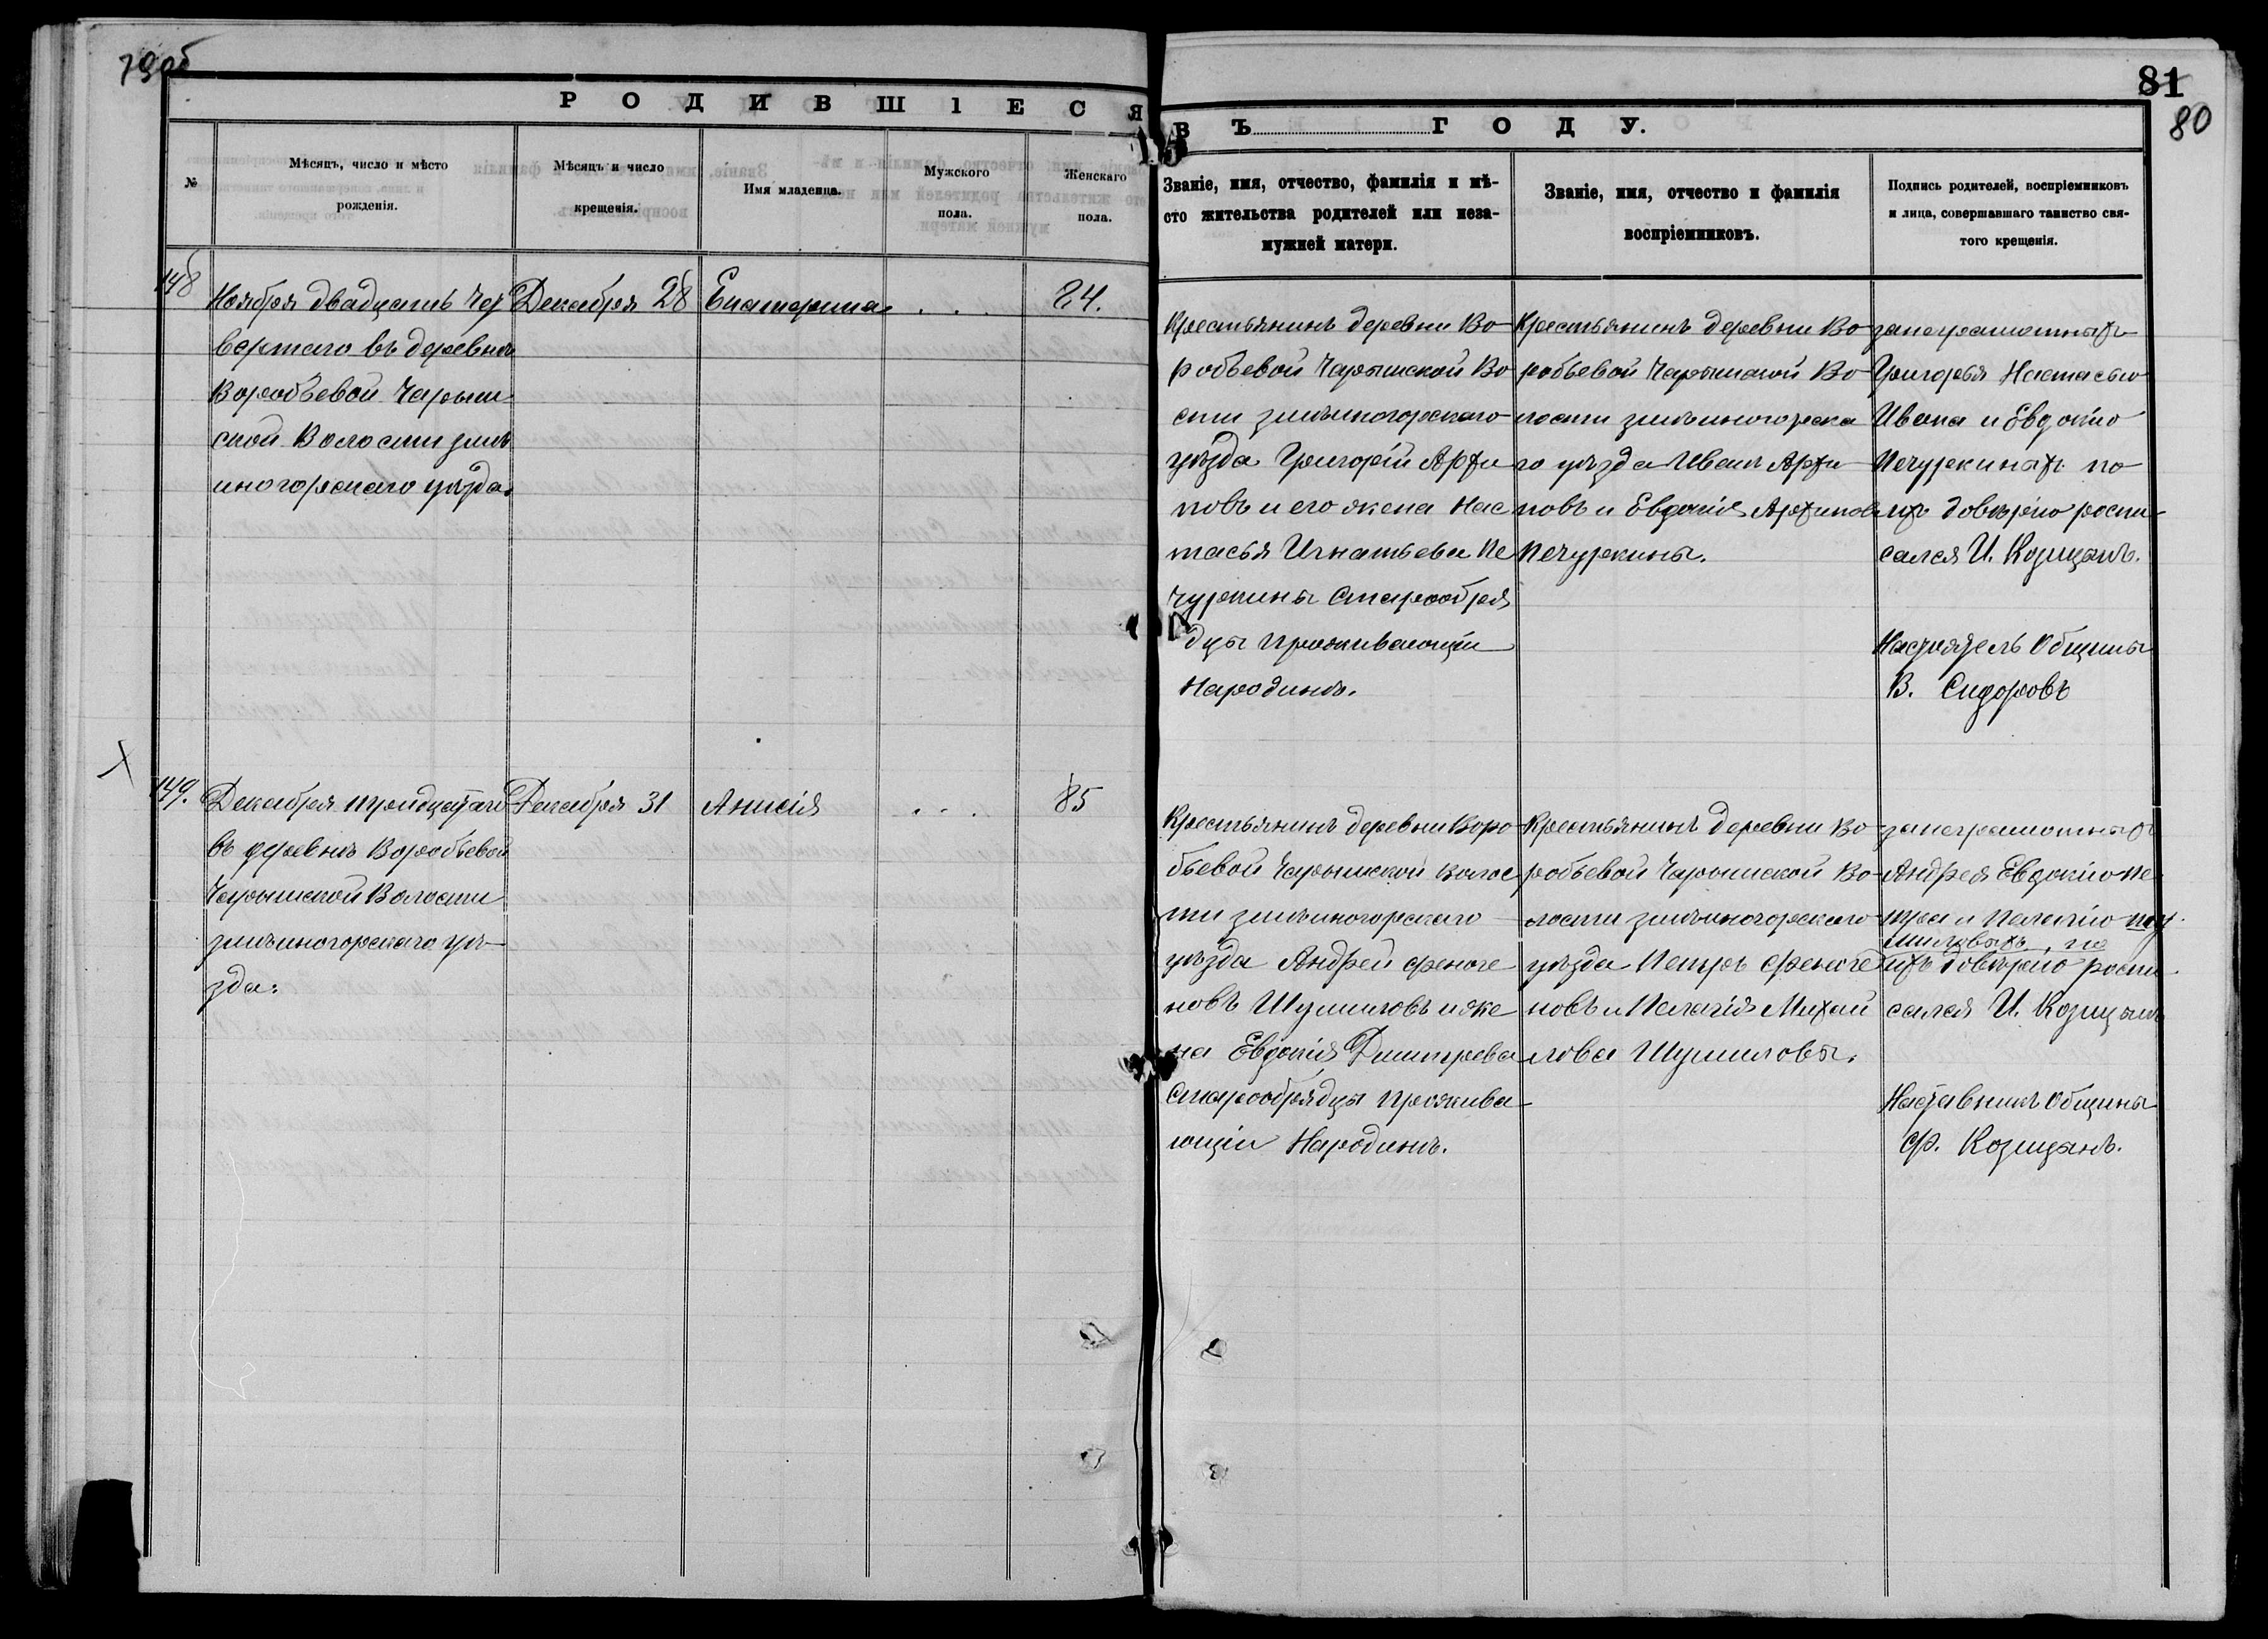 79об
81
80
РОДИВШІЕСЯ
ВЪ ГОДУ.
№
Мѣсяцъ, число и мѣсто
рожденія.
Мѣсяцъ и число
крещенія.
Имя младенца.
Мужского
пола.
Женскаго
пола.
Званіе, имя, отчество, фамилія и мѣ-
сто жительства родителей или неза-
мужней матери.
Званіе, имя, отчество и фамилія
воспріемниковъ.
Подпись родителей, воспріемниковъ
и лица, совершавшаго таинство свя-
того крещенія.
148
Ноября двадцать чет
вертаго въ деревнѣ
Воробьевой Чарыш
ской Волости змѣ
иногорскаго уѣзда.
Декабря 28
Екатерина
. . .
84.
Крестьянинъ деревни Во
робьевой Чарышской Во
сти змѣиногорскаго
уѣзда Григорій Архи
повъ и его жена Нас
тасья Игнатьева Пе
чуркины Старообря
дцы проживающіи
Народинѣ.
Крестьянинъ деревни Во
робьевой Чарышской Во
лости змѣиногорска
го уѣзда Иванъ Архи
повъ и Евдокія Архипова
Печуркины.
занеграмотныхъ
Григорья Настасью
Ивана и Евдокію
Печуркиныхъ по
ихъ довѣрію роспи-
сался И. Козицынъ.
Настоятель Общины
В. Сидоровъ
149.
Декабря тридцатаго
въ деревнѣ Воробьевой
Чарышской Волости
змѣиногорскаго уѣ-
зда.
Декабря 31
Анисія
. . .
85
Крестьянинъ деревни Воро-
бьевой Чарышской Волос
ти змѣиногорскаго
уѣзда Андрей Феноге
новъ Шумиловъ и же
на Евдокія Дмитрева
Старообрядцы прожива-
ющіи Народинѣ.
Крестьянинъ деревни Во-
робьевой Чарышской Во-
лости змѣиногорскаго
уѣзда Петръ Феноге
новъ и Пелагія Михай
лова Шумиловы.
занеграмотныхъ
Андрея Евдокію Пе
тра и Пелагію шу
миловыхъ, по
ихъ довѣрію роспи-
сался И. Козицынъ
Наставникъ Общины
Ф. Козицынъ.